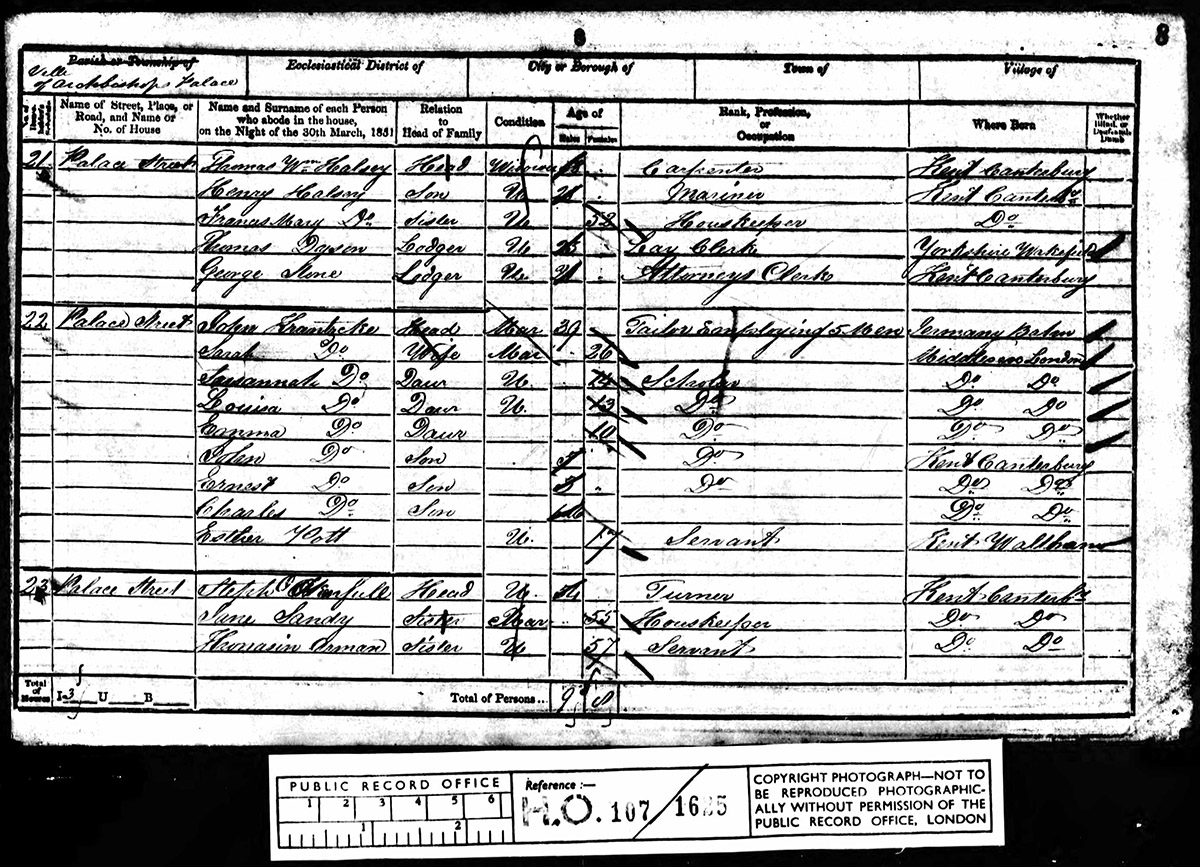 8
8
Parish or Township of
Ville of Archbishops Palace
Ecclesiastical District of
City or Borough of
Town of
Village of
Name of Street, Place, or Road, and Name or No. of House
Name and Surname of each Person who abode in the house, on the Night of the 30th March, 1851
Relation to Head of Family
Condition
Age of
Males
Females
Rank, Profession, or Occupation
Where Born
Whether Blind, or Deaf-and-Dumb
21 Palace Street Thomas Wm Halsey Head Carpenter Kent Canterbury
Henry Halsey Son U Mariner Kent
Francis Mary Do Sister U 52 Houskeeper Do
Thomas Dyson Lodger U Lay Clerk Yorkshire Wakefield
George Stone Lodger U 21 Attorneys Clerk Kent Canterbury
22 Palace Street John Head Mar 39 Tailor Employing 5 Men Germany
Sarah Do Wife Mar 26 Middlesex London
Susannah Do Daur U 14 Scholar Do Do
Louisa Do Daur U 13 Do Do Do
Emma Do Daur 10 Do Do Do
John Do Son Do Kent Canterbury
Ernest Do Son Do Do Do
Charles Do Son Do Do
Esther U 17 Servant Kent Waltham
23 Palace Street Head U Turner Kent
Jane Sandy Sister Mar 55 Houskeeper Do Do
Orman Sister U 57 Servant Do Do
Total of Houses I 3 U B Total of Persons... 9 8
PUBLIC RECORD OFFICE
1 2 3 4 5 6
1 2
Reference :—
H.O. 107 / 1625
COPYRIGHT PHOTOGRAPH—NOT TO
BE REPRODUCED PHOTOGRAPHIC-
ALLY WITHOUT PERMISSION OF THE
PUBLIC RECORD OFFICE, LONDON